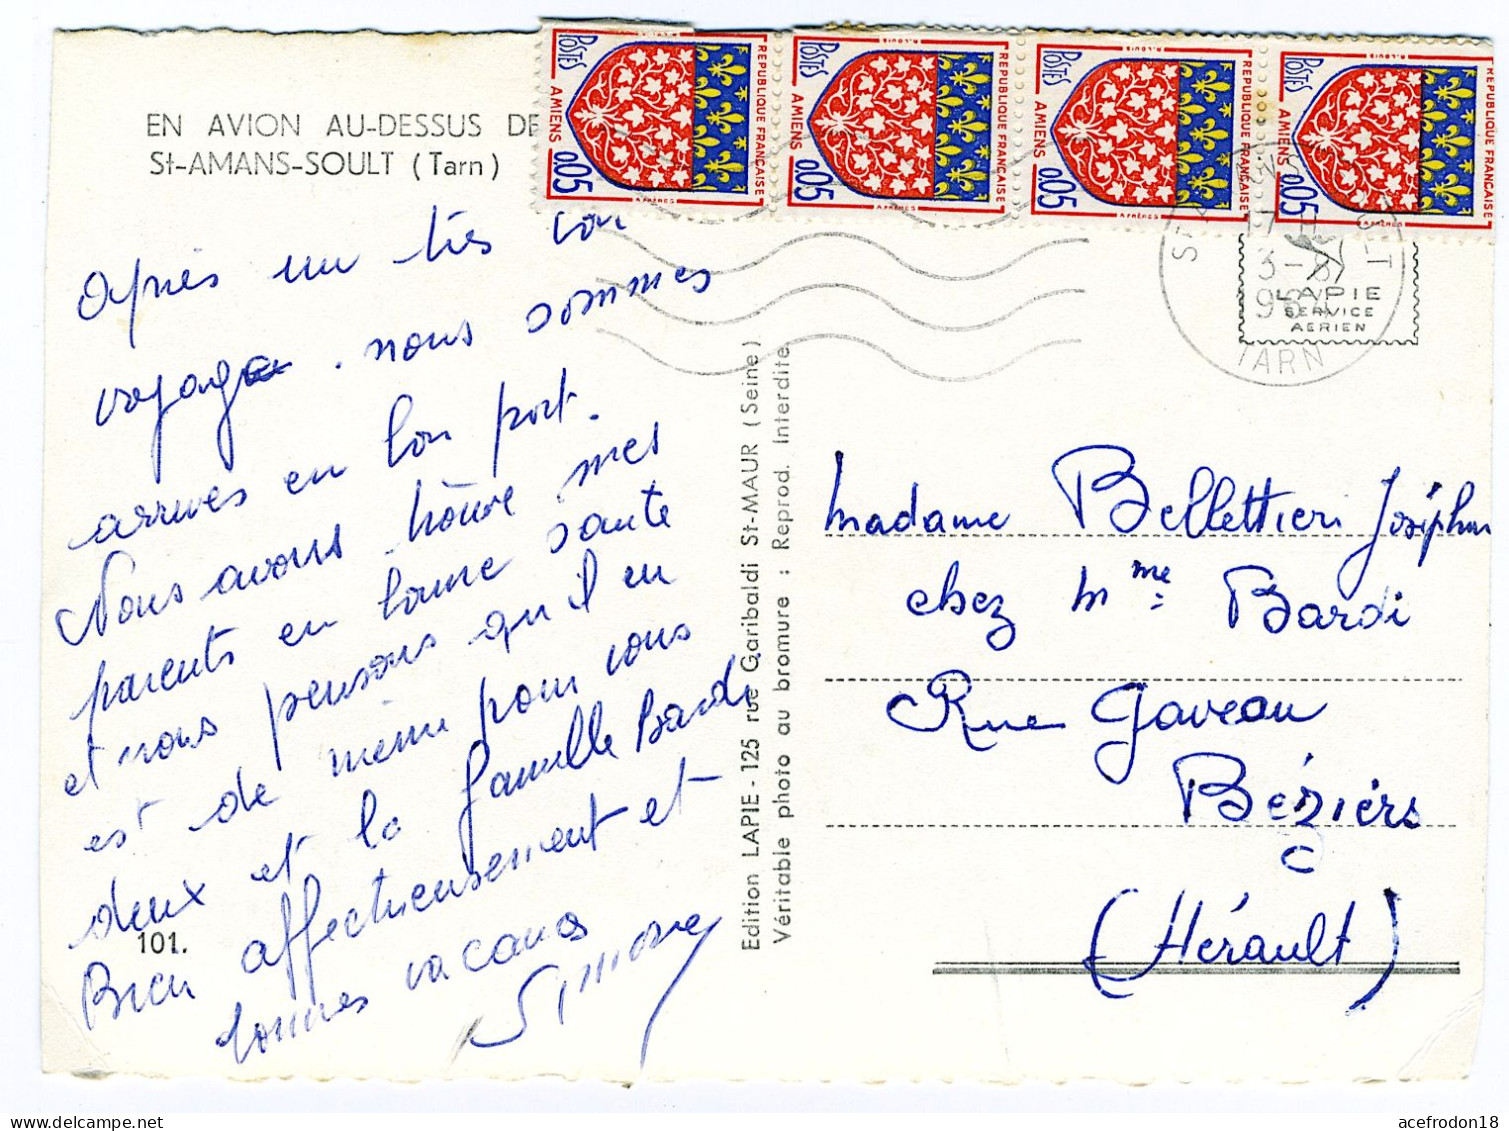 EN AVION AU-DESSUS DE
St-AMANS-SOULT (Tarn)
Après un très bon
voyage. nous sommes
arrivés en bon port.
Nous avons trouvé mes
parents en bonne sante
et nous pensons qu'il en
est de même pour vous
deux et la famille Bardi
Bien affectueusement et
bonnes vacances
Simone
101.
Edition LAPIE - 125 rue Garibaldi St-MAUR (Seine)
Véritable photo au bromure : Reprod. Interdite
POSTES
REPUBLIQUE FRANÇAISE
AMIENS
0.05
POSTES
REPUBLIQUE FRANÇAISE
AMIENS
0.05
POSTES
REPUBLIQUE FRANÇAISE
AMIENS
0.05
POSTES
REPUBLIQUE FRANÇAISE
AMIENS
0.05
3-8
TARN
LAPIE
SERVICE
AERIEN
Madame Bellettieri
chez Mme Bardi
Rue Gaveau
Béziers
(Hérault)
acefrodon18 | delcampe.net